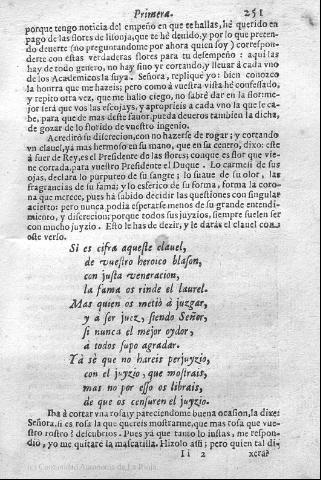 Primera. 251
porque tengo noticia del empeño en que te hallas, hé querido en
pago de las flores de lisonja, que te hé devido, y por lo que preten-
do deuerte (no preguntandome por ahora quien soy) correspon-
derte con estas verdaderas flores para tu desempeño: aqui las
hay de todo genero, no hay sino ye cortando, y lleuar á cada vno
de los Academicos la suya. Señora, replique yo: bien conozco
la honrra que me hazeis; pero como â vuestra vista hé confessado,
y repito otra vez, que me hallo ciego, no sabré dar en la flor: me-
jor será que vos las escojays, y apropieis a cada vno la que le ca-
be, para que de mas deste fauor, pueda deueros tambien la dicha,
de gozar de lo florido de vuestro ingenio.
Acreditó su discrecion, con no hazerse de rogar; y cortando
vn clauel, yá mas hermoso en su mano, que en su centro, dixo: este
á fuer de Rey, es el Presidente de las flores; con que es flor que vie-
ne cortada, para vuestro Presidente el Duque. Lo carmen de sus
ojas, declara lo purpureo de su sangre; lo suaue de su olor, las
fragrancias de su fama; y lo esferico de su forma, forma la coro-
na que merece, pues há sabido decidir las questiones con singular
acierto: pero nunca podia esperarse menos de su grande entendi-
miento, y discrecion; porque todos sus juyzios, siempre suelen ser
con mucho juyzio. Esto le has de dezir, y le darás el clauel con
este verso.
Si es cifra aqueste clauel,
de vuestro heroico blason,
con justa veneracion,
la fama os rinde el laurel.
Mas quien os metió à juzgar,
y á ser juez, siendo Señor,
si nunca el mejor oydor,
à todos supo agradar.
Yà sè que no hareis perjuyzio,
con el juyzio, que mostrais,
mas no por esso os librais,
de que os censuren el juyzio.
Iba à cortar vna rosa, y pareciendome buena ocasion, la dixe:
Señora, si es rosa la que quereis mostrarme, que mas rosa que vue-
stro rostro? descubrios. Pues yá que tanto lo instas, me respon-
dió, yo me quitaré la mascarilla. Hizolo assi; pero quien tal di-
Ii 2 xera?
(c) Comunidad Autónoma de La Rioja